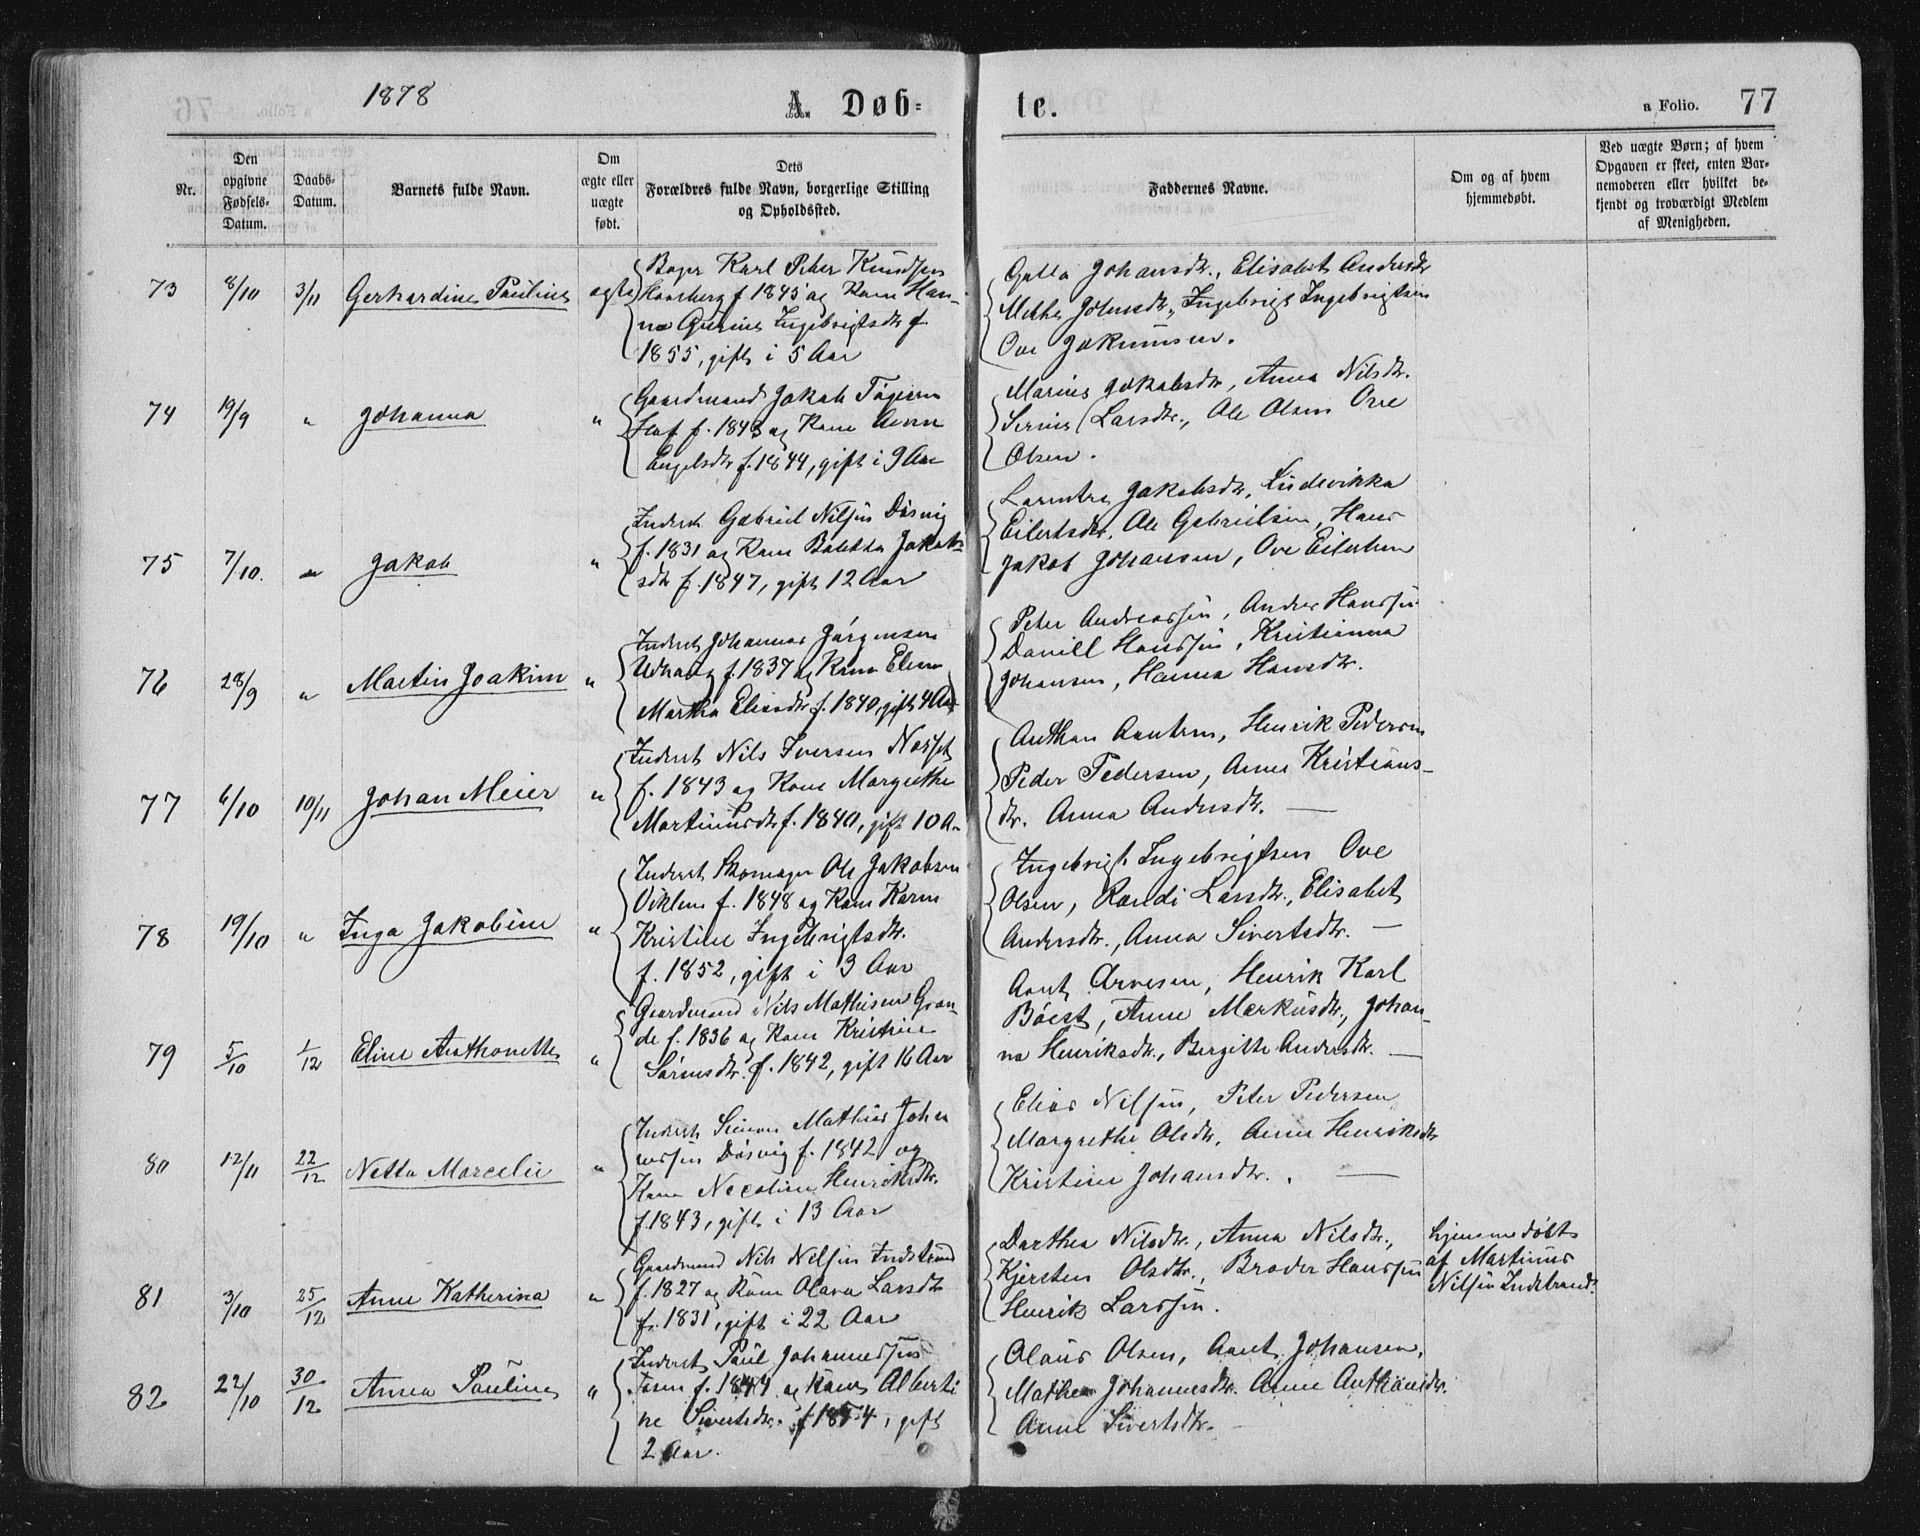 1878
A. Døb-
te.
a Folio. 77
Nr.
Den opgivne Fødsels-Datum.
Daabs-Datum.
Barnets fulde Navn.
Om ægte eller uægte født.
Dets Forældres fulde Navn, borgerlige Stilling og Opholdssted.
Faddernes Navne.
Om og af hvem hjemmedøbt.
Ved uægte Børn; af hvem Opgaven er skeet, enten Barnemoderen eller hvilket bekjendt og troværdigt Medlem af Menigheden.
73 8/10 3/11 Gerhardine Pauline ægte
Karl Peter Knudsen
f 1845 og Kone Han-
na Gurine Ingebrigtsdtr f.
1855, gift i 5 Aar
Johansdtr., Elisabet Andersdtr
Johnsdtr., Ingebrigt Ingebrigtsen
Ove Joknumsen.
74 19/9 " Johanna "
Gaardmand Jakob
f. 1843 og Kone
Engelsdtr f. 1844, gift i 9 Aar
Jakobsdtr, Anna Nilsdtr.
Larsdtr., Ole Olsen Ove
Olsen.
75 7/10. " Jakob "
Inderst Gabriel Nilsen Døsvig
f. 1831 og Kone Jakob-
sdtr f. 1847, gift 12 Aar
Jakobsdtr, Ludevikka
Eilertsdtr, Ole Gabrielsen, Hans
Jakob Johansen, Ove Eilertsen
76 28/9 " Martin Joakim "
Inderst Johannes Jørgensen
Udhaug f. 1837 og Kone Elen
Martha Eliasdtr f. 1840, gift 4 Aar
Peter Andreassen, Andreas Hanssen
Daniel Hanssen, Kristianna
Johansen, Hanna Hansdtr.
77 6/10 10/11 Johan Meier "
Inderst Nils Iversen
f. 1843 og Kone Margrethe
Martinusdtr f. 1840, gift 10 A
Anthon Aantsen, Henrik Pedersen
Peder Pedersen, Anne Kristians-
dtr. Anna Andersdtr. —
78 19/10 " Inga Jakobine "
Inderst Skomager Ole Jakobsen
Viklem f. 1848 og Kone Karen
Kristine Ingebrigtsdtr.
f. 1852, gift i 3 Aar
Ingebrigt Ingebrigtsen Ove
Olsen, Randi Larsdtr., Elisabet
Andersdtr., Anna Sivertsdtr. —
79 5/10 1/12 Eline Anthonette "
Gaardmand Nils Mathisen Gran-
de f. 1836 og Kone Kristine
Sørensdtr. f. 1842, gift 16 Aar
Aant Arvesen, Henrik Karl
Bøest, Anne Markusdtr., Johan-
na Henriksdtr., Bergitte Andersdtr. —
80 12/11 22/12 Netta Marcelie "
Inderst Simon Mathias Johan
nessen Døsvig f. 1842 og
Kone Nicoline Henriksdtr.
f. 1843, gift i 13 Aar
Elias Nilsen, Peter Pedersen
Margrethe Olsdtr. Anne Henriksdtr
Kristine Johansdtr. . —
81 3/10 25/12 Anne Katherina "
Gaardmand Nils Nilsen Indstrand
f. 1827 og Kone Olava Larsdtr
f. 1831, gift i 22 Aar
Dorthea Nilsdtr., Anna Nilsdtr.,
Kjersten Olsdtr., Broder Hanssen
Henrik Larssen.
hjemmedøbt
af Martinus
Nilsen Indstrand.
82 22/10 30/12 Anna Pauline "
Inderst Paul Johannessen
f. 1844 og Kone Alberti
ne Sivertsdtr. f 1854, gift
2 Aar.
Olaus Olsen, Aant Johansen,
Mathea Johannesdtr. Anne Anthonisdtr.
Anne Sivertsdtr. —